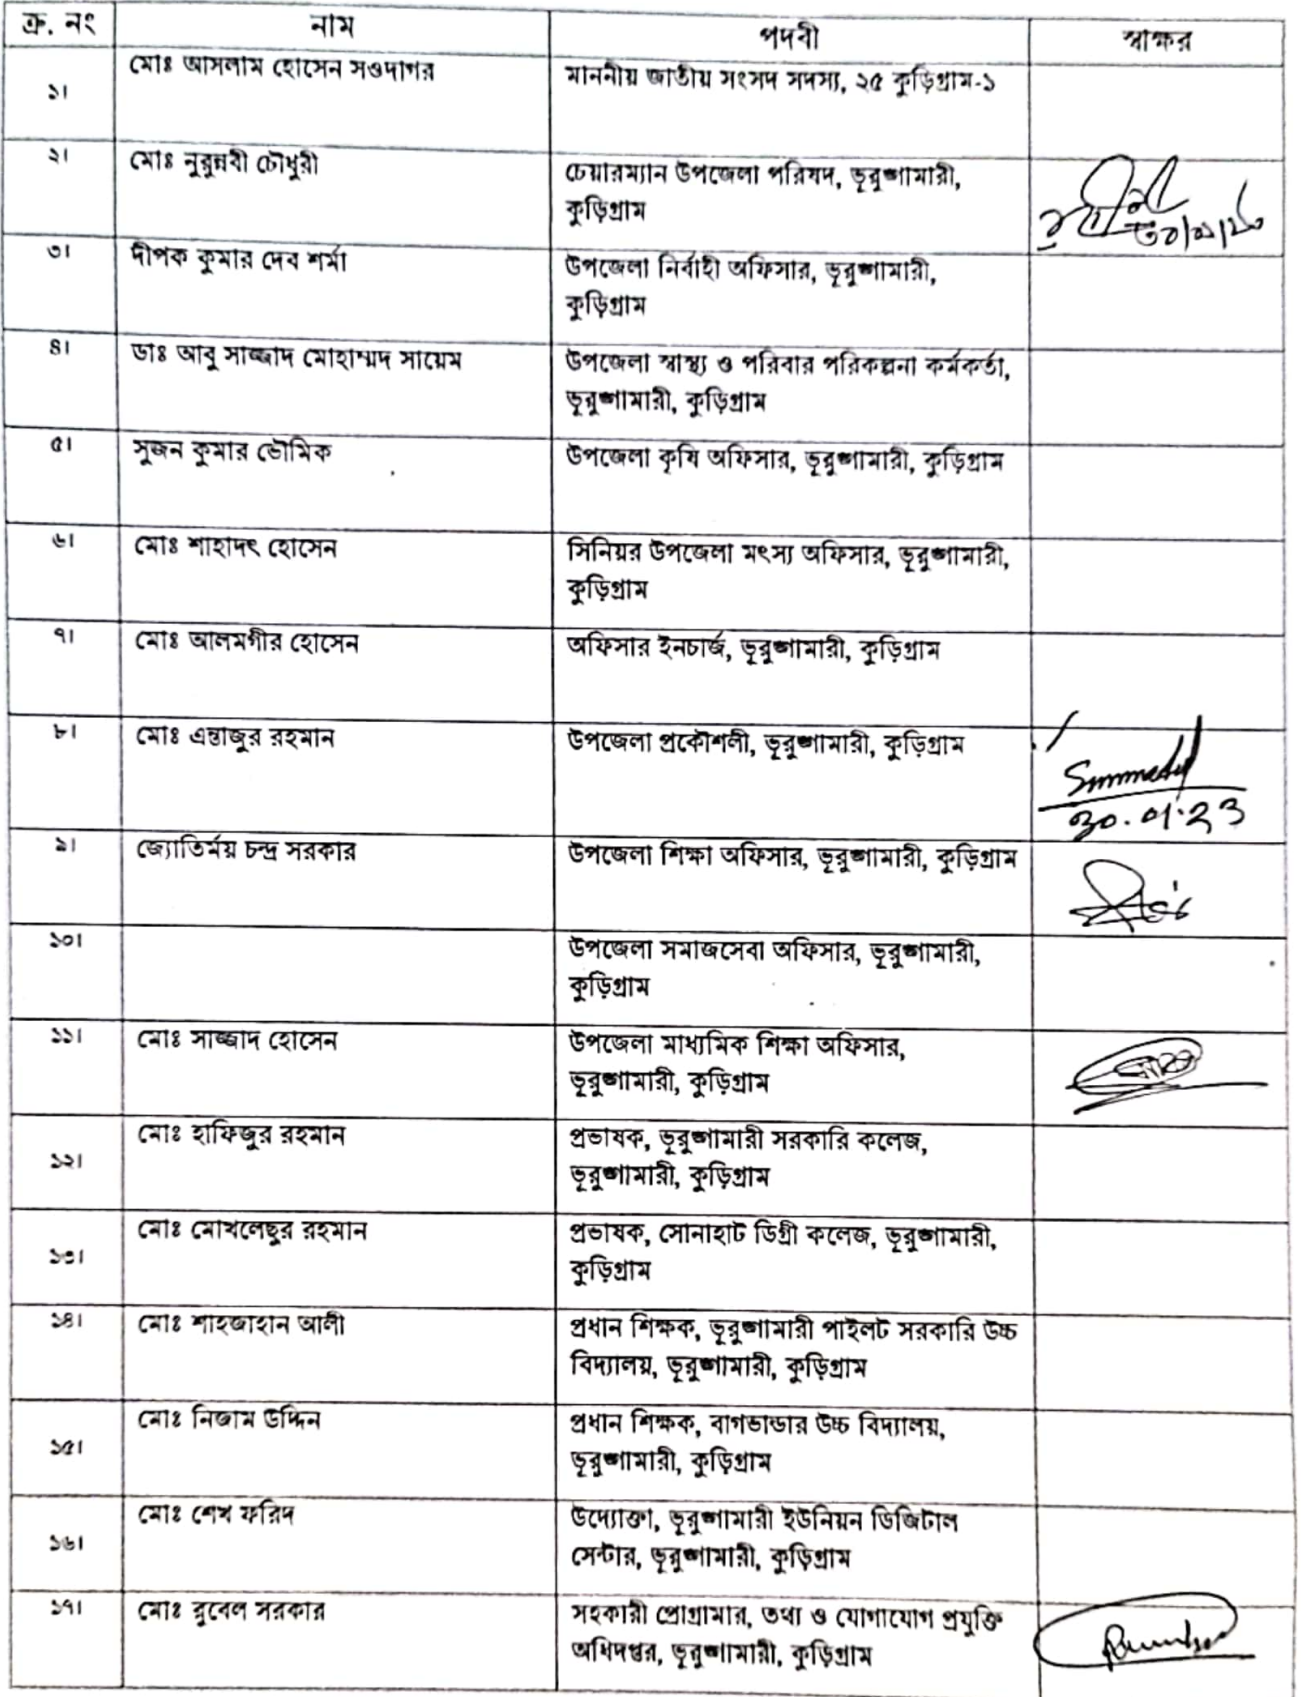 ক্র. নং নাম পদবী স্বাক্ষর
১। মোঃ আসলাম হোসেন সওদাগর মাননীয় জাতীয় সংসদ সদস্য, ২৫ কুড়িগ্রাম-১
২। মোঃ নুরুন্নবী চৌধুরী চেয়ারম্যান উপজেলা পরিষদ, ভূরুঙ্গামারী,
কুড়িগ্রাম
৩। দীপক কুমার দেব শর্মা উপজেলা নির্বাহী অফিসার, ভূরুঙ্গামারী,
কুড়িগ্রাম
৪। ডাঃ আবু সাজ্জাদ মোহাম্মদ সায়েম উপজেলা স্বাস্থ্য ও পরিবার পরিকল্পনা কর্মকর্তা,
ভূরুঙ্গামারী, কুড়িগ্রাম
৫। সুজন কুমার ভৌমিক উপজেলা কৃষি অফিসার, ভূরুঙ্গামারী, কুড়িগ্রাম
৬। মোঃ শাহাদৎ হোসেন সিনিয়র উপজেলা মৎস্য অফিসার, ভূরুঙ্গামারী,
কুড়িগ্রাম
৭। মোঃ আলমগীর হোসেন অফিসার ইনচার্জ, ভূরুঙ্গামারী, কুড়িগ্রাম
৮। মোঃ এন্তাজুর রহমান উপজেলা প্রকৌশলী, ভূরুঙ্গামারী, কুড়িগ্রাম
30.01.23
৯। জ্যোতির্ময় চন্দ্র সরকার উপজেলা শিক্ষা অফিসার, ভূরুঙ্গামারী, কুড়িগ্রাম
১০। উপজেলা সমাজসেবা অফিসার, ভূরুঙ্গামারী,
কুড়িগ্রাম
১১। মোঃ সাজ্জাদ হোসেন উপজেলা মাধ্যমিক শিক্ষা অফিসার,
ভূরুঙ্গামারী, কুড়িগ্রাম
১২। মোঃ হাফিজুর রহমান প্রভাষক, ভূরুঙ্গামারী সরকারি কলেজ,
ভূরুঙ্গামারী, কুড়িগ্রাম
১৩। মোঃ মোখলেছুর রহমান প্রভাষক, সোনাহাট ডিগ্রী কলেজ, ভূরুঙ্গামারী,
কুড়িগ্রাম
১৪। মোঃ শাহজাহান আলী প্রধান শিক্ষক, ভূরুঙ্গামারী পাইলট সরকারি উচ্চ
বিদ্যালয়, ভূরুঙ্গামারী, কুড়িগ্রাম
১৫। মোঃ নিজাম উদ্দিন প্রধান শিক্ষক, বাগভান্ডার উচ্চ বিদ্যালয়,
ভূরুঙ্গামারী, কুড়িগ্রাম
১৬। মোঃ শেখ ফরিদ উদ্যোক্তা, ভূরুঙ্গামারী ইউনিয়ন ডিজিটাল
সেন্টার, ভূরুঙ্গামারী, কুড়িগ্রাম
১৭। মোঃ রুবেল সরকার সহকারী প্রোগ্রামার, তথ্য ও যোগাযোগ প্রযুক্তি
অধিদপ্তর, ভূরুঙ্গামারী, কুড়িগ্রাম